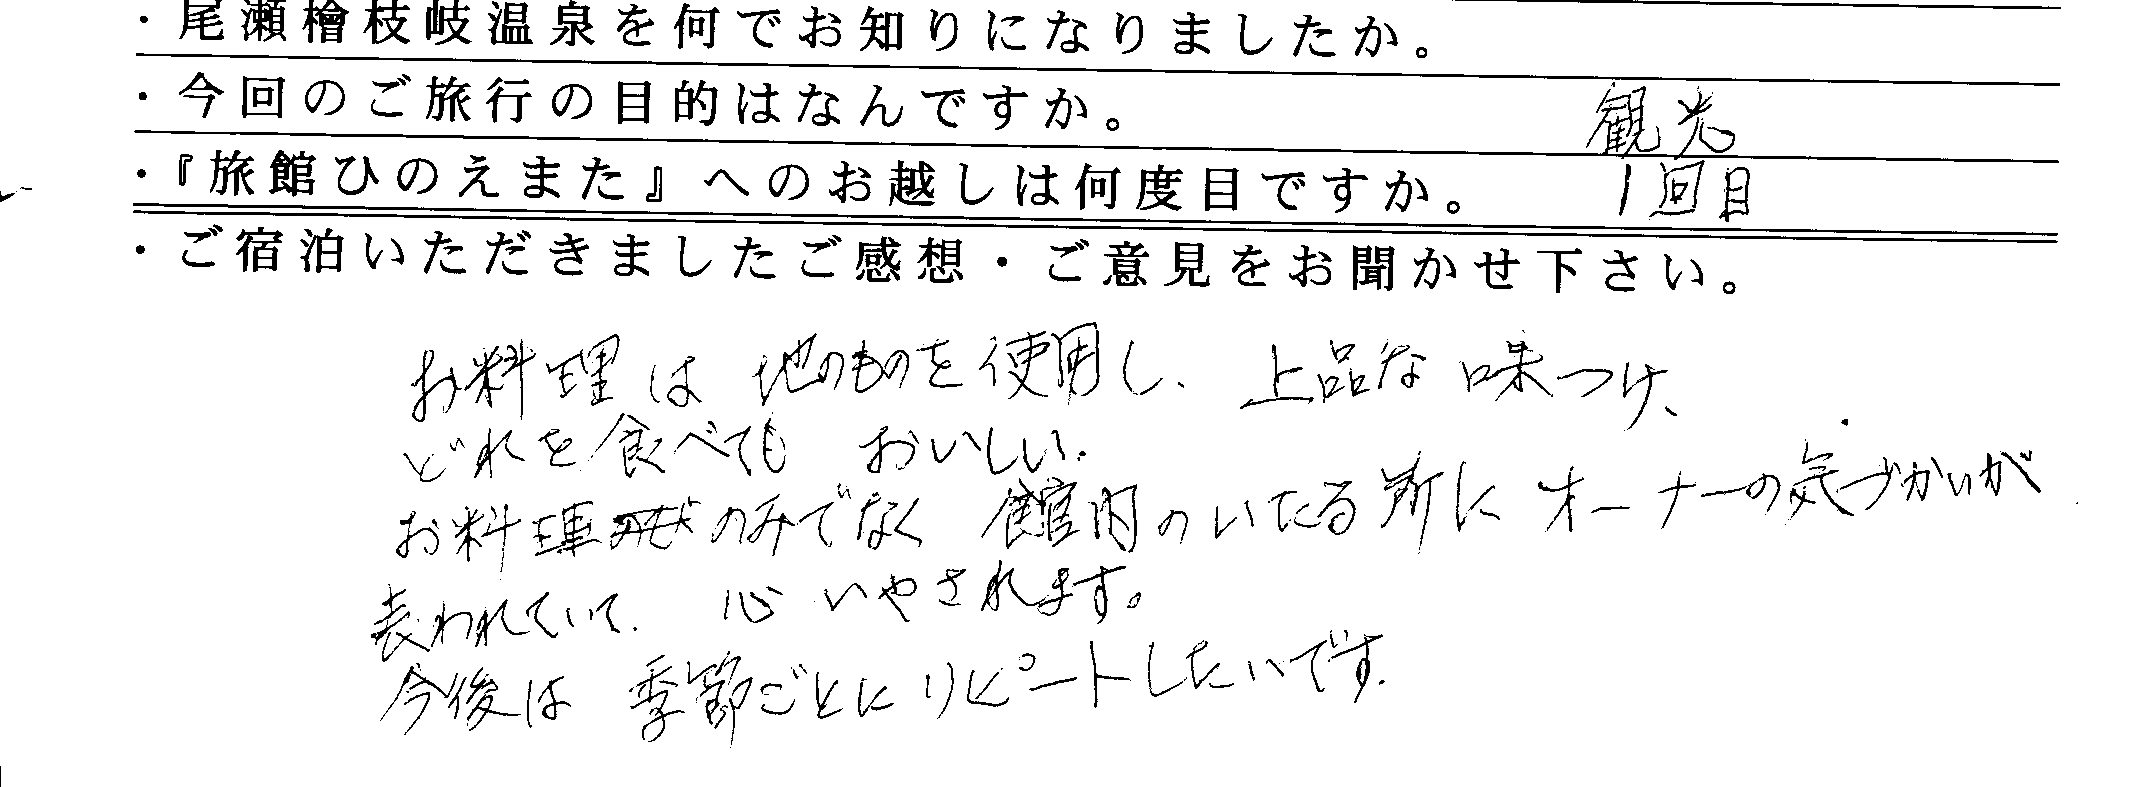 ・尾瀬檜枝岐温泉を何でお知りになりましたか。
・今回のご旅行の目的はなんですか。 観光
・『旅館ひのえまた』へのお越しは何度目ですか。 1回目
・ご宿泊いただきましたご感想・ご意見をお聞かせ下さい。
お料理は地のものを使用し、上品な味つけ、
どれを食べてもおいしい。
お料理のみでなく館内のいたる所にオーナーの気づかいが
表われていて、心いやされます。
今後は季節ごとにリピートしたいです。